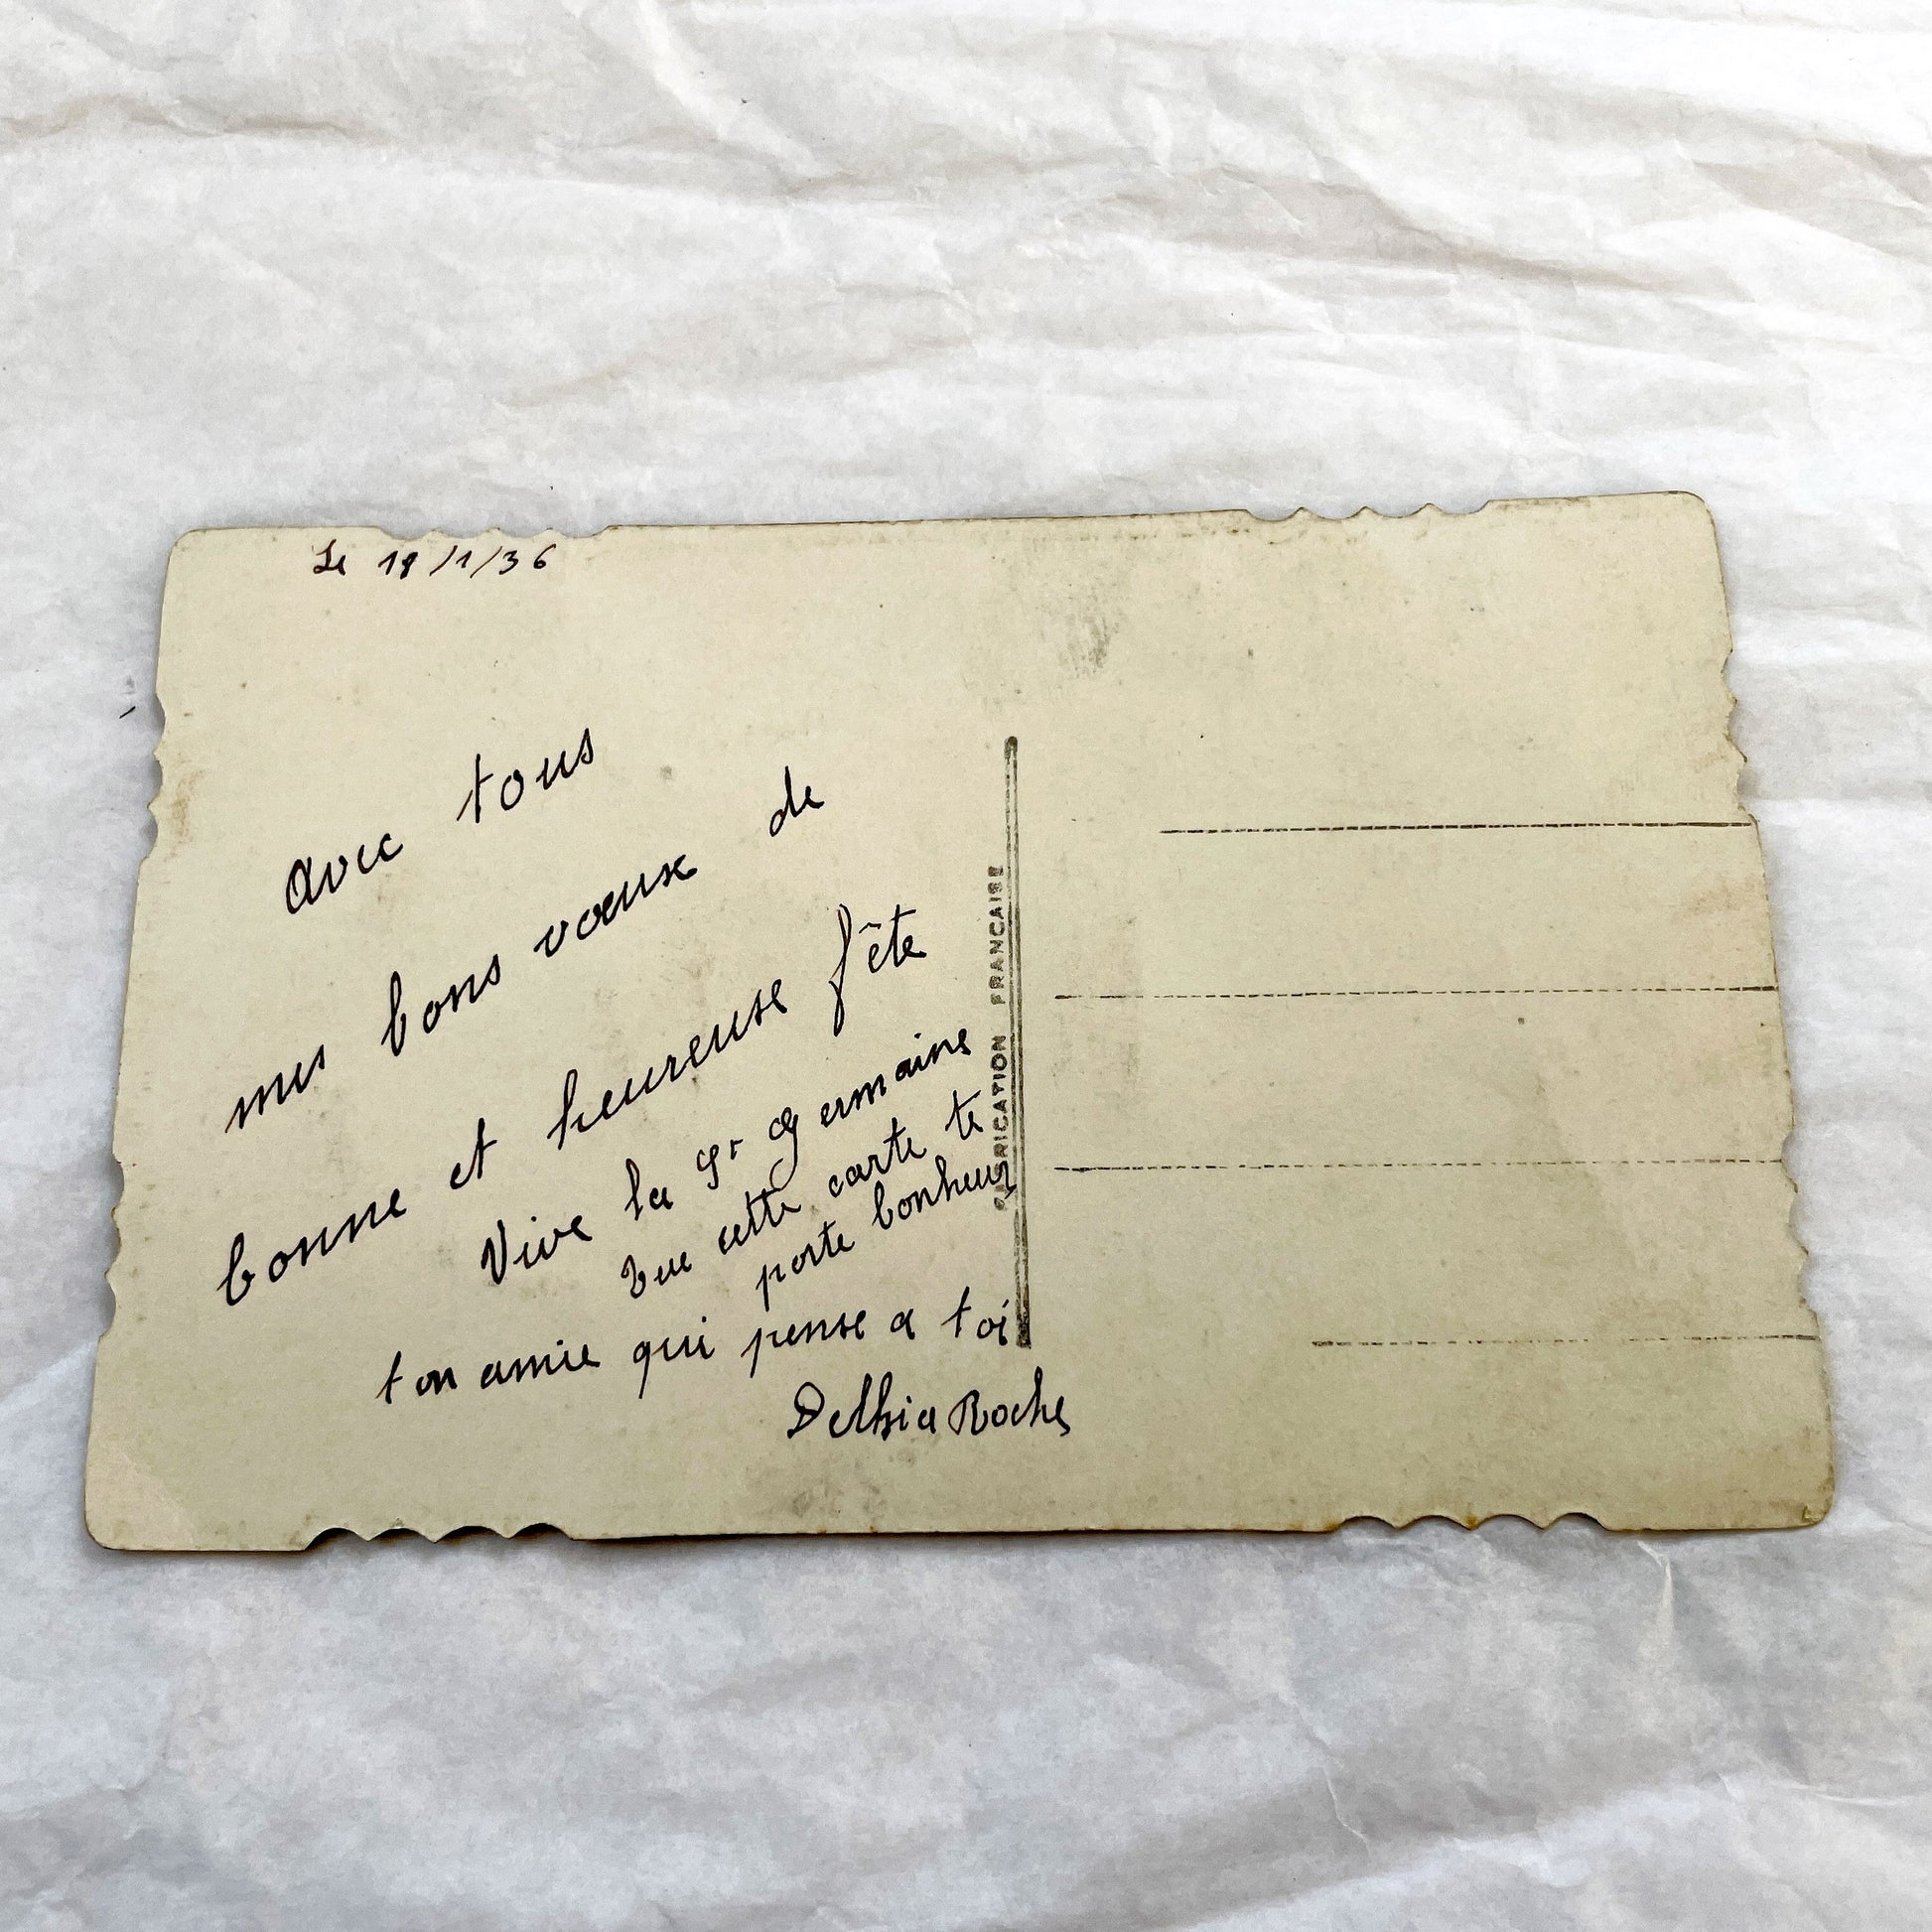 Le 18/1/36
avec tous
mes bons vœux de
bonne et heureuse fête
Vive la St Germaine
Que cette carte te
porte bonheur
ton amie qui pense a toi
Roche
FABRICATION FRANCAISE